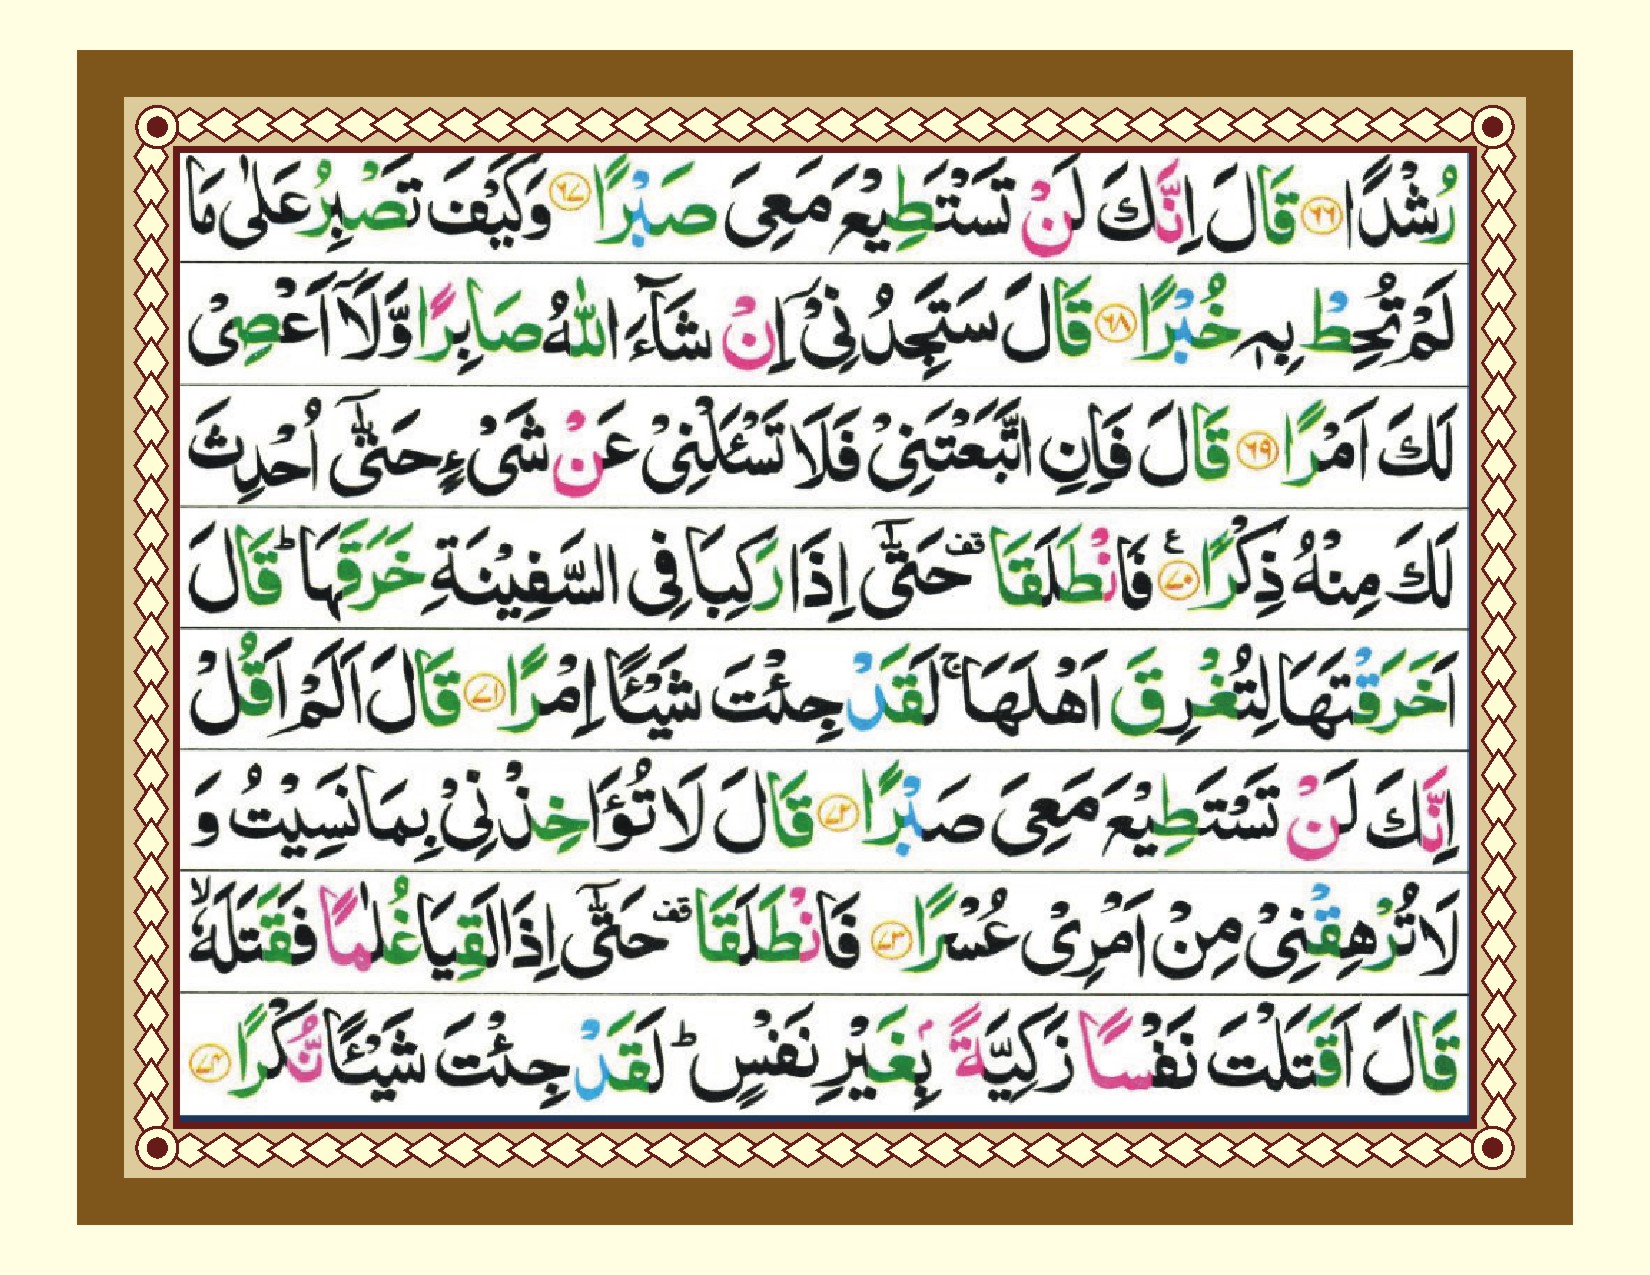 رُشْدًا ﴿۶۶﴾ قَالَ اِنَّكَ لَنْ تَسْتَطِيْعَ مَعِىَ صَبْرًا ﴿۶۷﴾ وَكَيْفَ تَصْبِرُ عَلٰى مَا
لَمْ تُحِطْ بِهٖ خُبْرًا ﴿۶۸﴾ قَالَ سَتَجِدُنِىْۤ اِنْ شَآءَ اللّٰهُ صَابِرًا وَّلَاۤ اَعْصِىْ
لَكَ اَمْرًا ﴿۶۹﴾ قَالَ فَاِنِ اتَّبَعْتَنِىْ فَلَا تَسْـَٔلْنِىْ عَنْ شَىْءٍ حَتّٰٓى اُحْدِثَ
لَكَ مِنْهُ ذِكْرًا ﴿۷۰﴾ ع فَانْطَلَقَا قف حَتّٰٓى اِذَا رَكِبَا فِى السَّفِيْنَةِ خَرَقَهَا ؕ قَالَ
اَخَرَقْتَهَا لِتُغْرِقَ اَهْلَهَا ۚ لَقَدْ جِئْتَ شَيْـًٔا اِمْرًا ﴿۷۱﴾ قَالَ اَلَمْ اَقُلْ
اِنَّكَ لَنْ تَسْتَطِيْعَ مَعِىَ صَبْرًا ﴿۷۲﴾ قَالَ لَا تُؤَاخِذْنِىْ بِمَا نَسِيْتُ وَ
لَا تُرْهِقْنِىْ مِنْ اَمْرِىْ عُسْرًا ﴿۷۳﴾ فَانْطَلَقَا قف حَتّٰٓى اِذَا لَقِيَا غُلٰمًا فَقَتَلَهٗ ۙ
قَالَ اَقَتَلْتَ نَفْسًا زَكِيَّةًۢ بِغَيْرِ نَفْسٍ ؕ لَقَدْ جِئْتَ شَيْـًٔا نُّكْرًا ﴿۷۴﴾